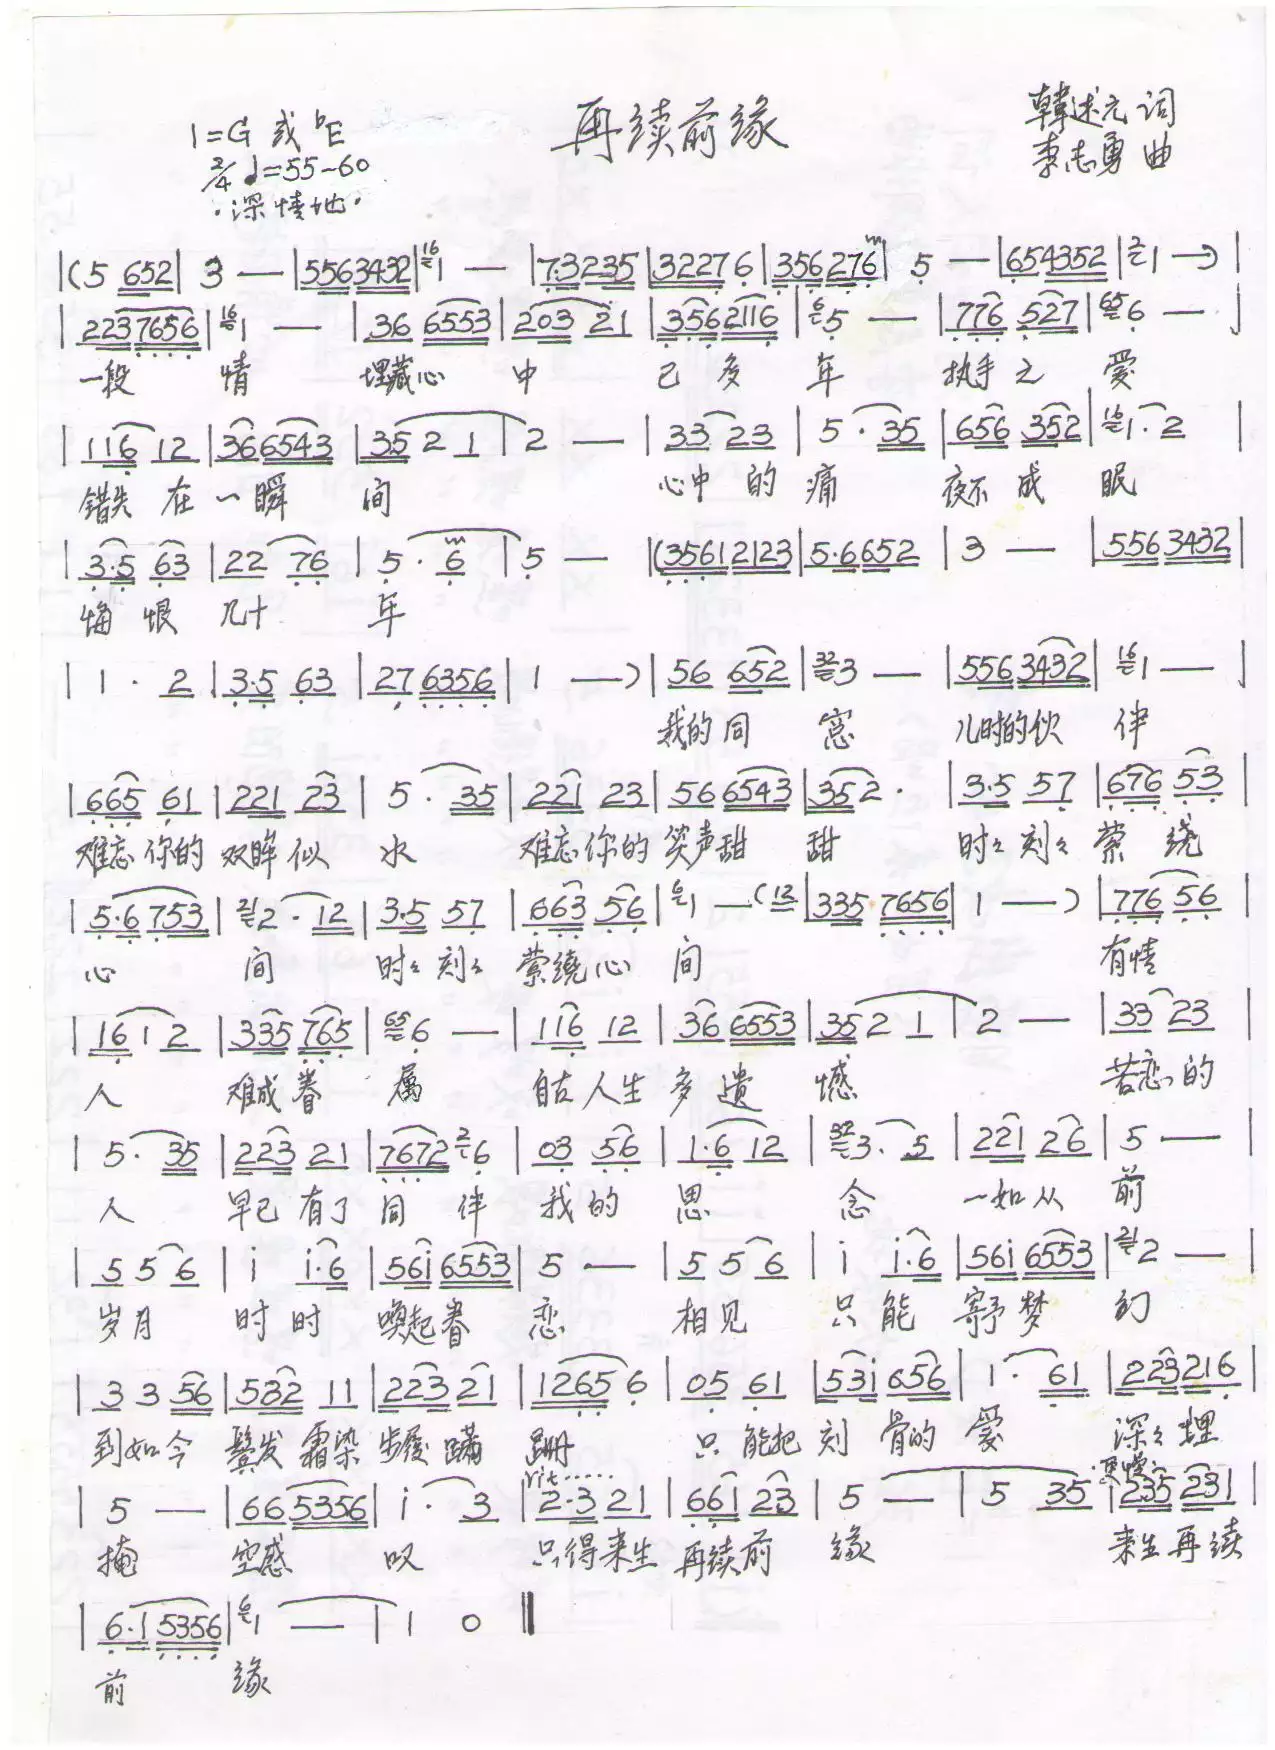 再续前缘
1=G 或 ♭E
2/4 ♩=55~60
·深情地·
韩述元 词
李志勇 曲
|(5 652| 3 — |5563432|1 — |7·3235|32276|356276|5 — |654352|1 —)|
|2237656|1 — |36 6553|203 21|3562116|5 — |776 527|6 — |
一段 情 埋藏心 中 已多 年 执手之 爱
|116 12|366543|3521|2 — |33 23|5·35|656 352|1·2|
错失在一瞬 间 心中的 痛 夜不成 眠
|3·5 63|22 76|5·6|5 — |(35612123|5·6652|3 — |5563432|
悔恨 几十 年
|1·2|3·5 63|27 6356|1 —)|56 652|3 — |5563432|1 — |
我的同 窓 儿时的伙 伴
|665 61|221 23|5·35|221 23|56 6543|352·|3·5 57|676 53|
难忘你的 双眸似 水 难忘你的 笑声甜 甜 时々刻々 萦绕
|5·6 753|2·12|3·5 57|663 56|1 —(12|335 7656|1 —)|776 56|
心 间 时々刻々 萦绕心 间 有情
|1612|335 765|6 — |116 12|36 6553|3521|2 — |33 23|
人 难成眷 属 自古人生 多遗 憾 苦恋的
|5·35|223 21|76726|03 56|1·612|3·5|221 26|5 — |
人 早已有了 同伴 我的 思 念 一如从 前
|5 5 6|i i·6|56i 6553|5 — |5 5 6|i i·6|56i 6553|2 — |
岁月 时时 唤起眷 恋 相见 只能 寄予梦 幻
|3 3 56|532 11|223 21|12656|05 61|53i 656|1·61|223216|
到如今 鬓发霜染 步履蹒 跚 只能把 刻骨的 爱 深々埋
rit······
|5 — |66 5356|i·3|2·3 21|661 23|5 — |5 35|235 231|
掩 空感 叹 只得来生 再续前 缘 来生再续
|6·1 5356|1 — |1 0‖
前 缘